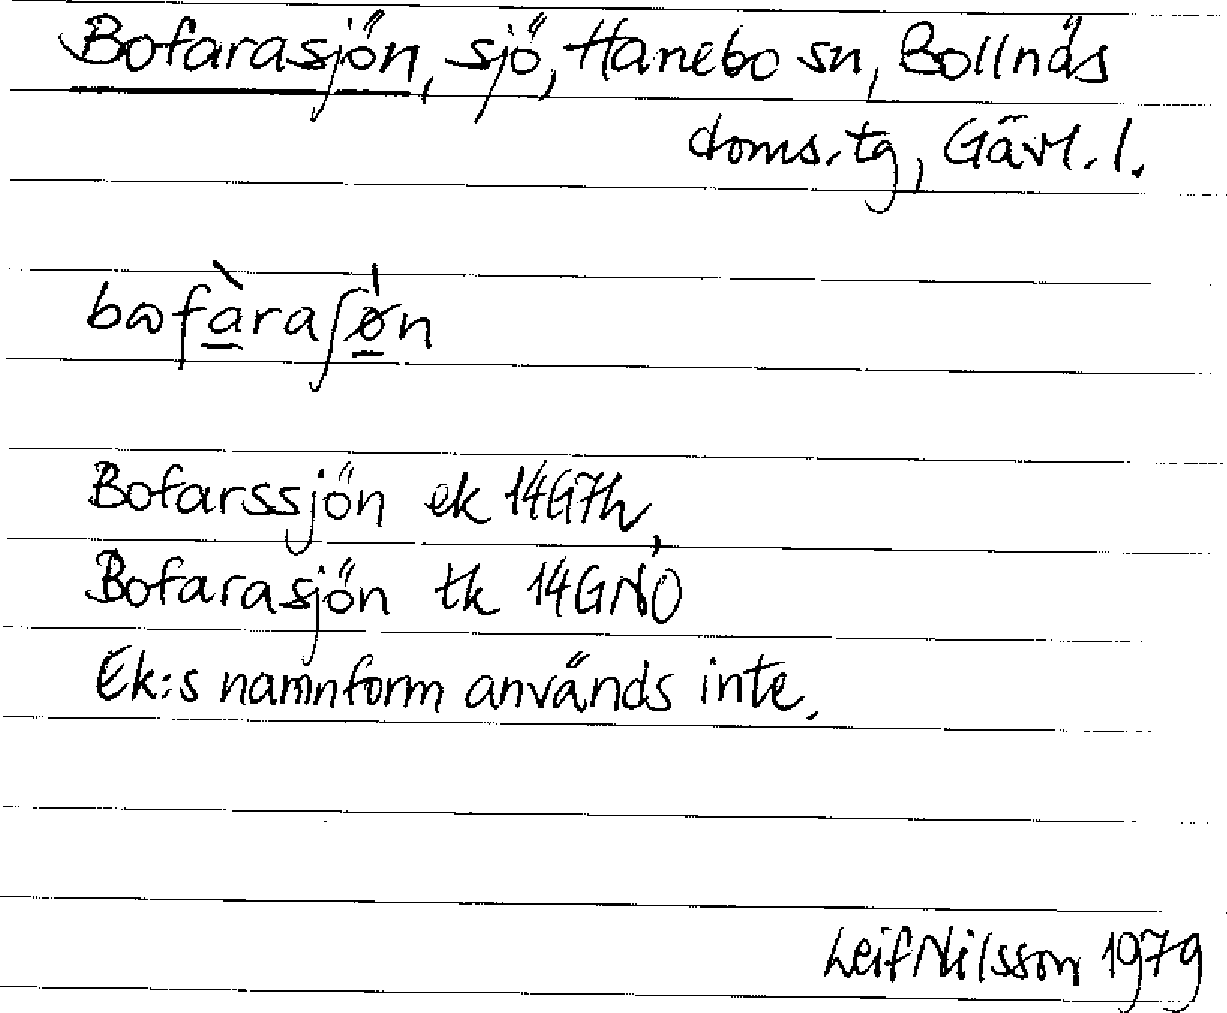 Bofarasjön, sjö, Hanebo sn, Bollnäs
doms.tg, Gävl. l.
bɷfàraʃǿn
Bofarssjön ek 14G7h,
Bofarasjön tk 14GNO
Ek:s namnform används inte.
Leif Nilsson 1979